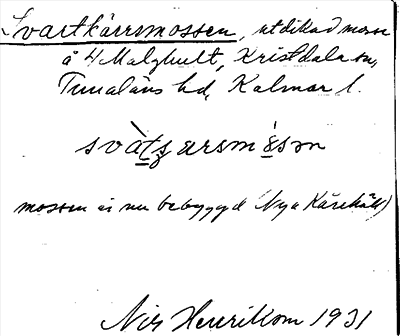 Svartkärrsmossen, utdikad mosse
å 4 Malghult, Kristdala sn,
Tunaläns hd, Kalmar l.
svàtʂ arsm`ɛsən
mossen är nu bebyggd (Nya Kärrhäll)
Nils Henrikson 1931